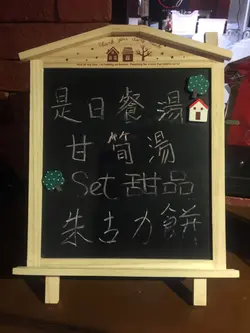 是日餐湯
甘筍湯
Set 甜品
朱古力餅